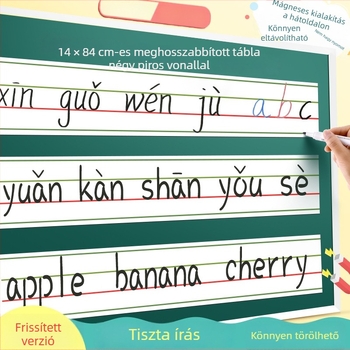 Mágneses kialakítás
a hátoldalon
Könnyen
eltávolítható
14 × 84 cm-es meghosszabbított tábla
négy piros vonallal
xīn guǒ wén jù abc
yuǎn kàn shān yǒu sè
apple banana cherry
Frissített
verzió
Tiszta írás
Könnyen törölhető